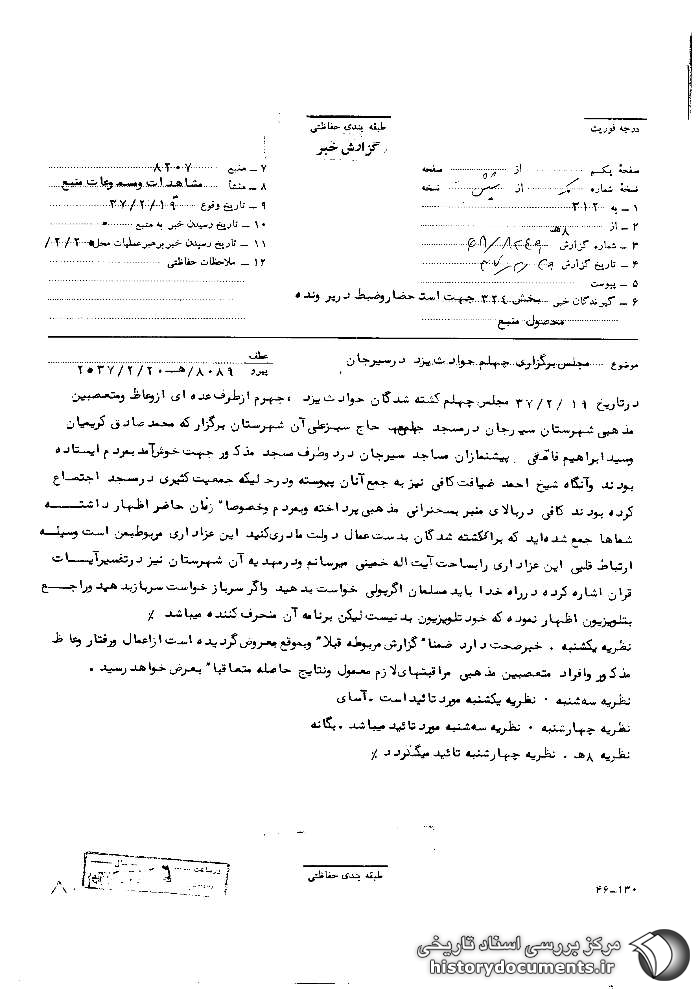 درجه فوریت
طبقه بندی حفاظتی
گزارش خبر
صفحهٔ یکم از صفحه
نسخهٔ شماره از نسخه
۱ – به ۳۱۲
۲ – از ۸هـ
۳ – شماره گزارش
۴ – تاریخ گزارش
۵ – پیوست
۶ – گیرندگان خبر بخش ۳۲٤ جهت استحضار وضبط درپرونده
محصول منبع
۷ – منبع ۸۲۰۷
۸ – منشأ مشاهدات ومسموعات منبع
۹ – تاریخ وقوع ۳۷/۲/۱۹
۱۰ – تاریخ رسیدن خبر به منبع
۱۱ – تاریخ رسیدن خبر برهبر عملیات محل
۱۲ – ملاحظات حفاظتی
موضوع مجلس برگزاری چهلم حوادث یزد درسیرجان
عطف
پیرو ۸۰۸۹/هـ – ۲۵۳۷/۲/۲۰
درتاریخ ۳۷/۲/۱۹ مجلس چهلم کشته شدگان حوادث یزد ، جهرم ازطرف عده ای ازوعاظ ومتعصبین
مذهبی شهرستان سیرجان درمسجد حاج سبزعلی آن شهرستان برگزار که محمد صادق کریمیان
وسید ابراهیم پیشنمازان مساجد سیرجان در دوطرف مسجد مذکور جهت خوش آمد بمردم ایستاده
بودند وآنگاه شیخ احمد ضیافت کافی نیز به جمع آنان پیوسته ودرحالیکه جمعیت کثیری درمسجد اجتماع
کرده بودند کافی دربالای منبر بسخنرانی مذهبی پرداخته وبمردم وخصوصا" زنان حاضر اظهار داشتـــه
شماها جمع شده اید که برای کشته شدگان بدست عمال دولت عزاداری کنید این عزاداری مربوط بمن است وسیله
ارتباط قلبی این عزاداری را بساحت آیت اله خمینی میرسانم ودرمهدیه آن شهرستان نیز درتفسیر آیـــات
قران اشاره کرده در راه خدا باید مسلمان اگرپولی خواست بدهید واگر سرباز خواست سرباز بدهید وراجـــع
بتلویزیون اظهار نموده که خود تلویزیون بد نیست لیکن برنامه آن منحرف کننده میباشد ٪
نظریه یکشنبه . خبرصحت دارد ضمنا" گزارش مربوطه قبلا" وبموقع معروض گردیده است ازاعمال ورفتار وعاظ
مذکور وافراد متعصبین مذهبی مراقبتهای لازم معمول ونتایج حاصله متعاقبا" بعرض خواهد رسید .
نظریه سه شنبه . نظریه یکشنبه مورد تائید است . آسای
نظریه چهارشنبه . نظریه سه شنبه مورد تائید میباشد . یگانه
نظریه ۸هـ . نظریه چهارشنبه تائید میگردد ٪
طبقه بندی حفاظتی
۴۶–۱۳۰
مرکز بررسی اسناد تاریخی
historydocuments.ir